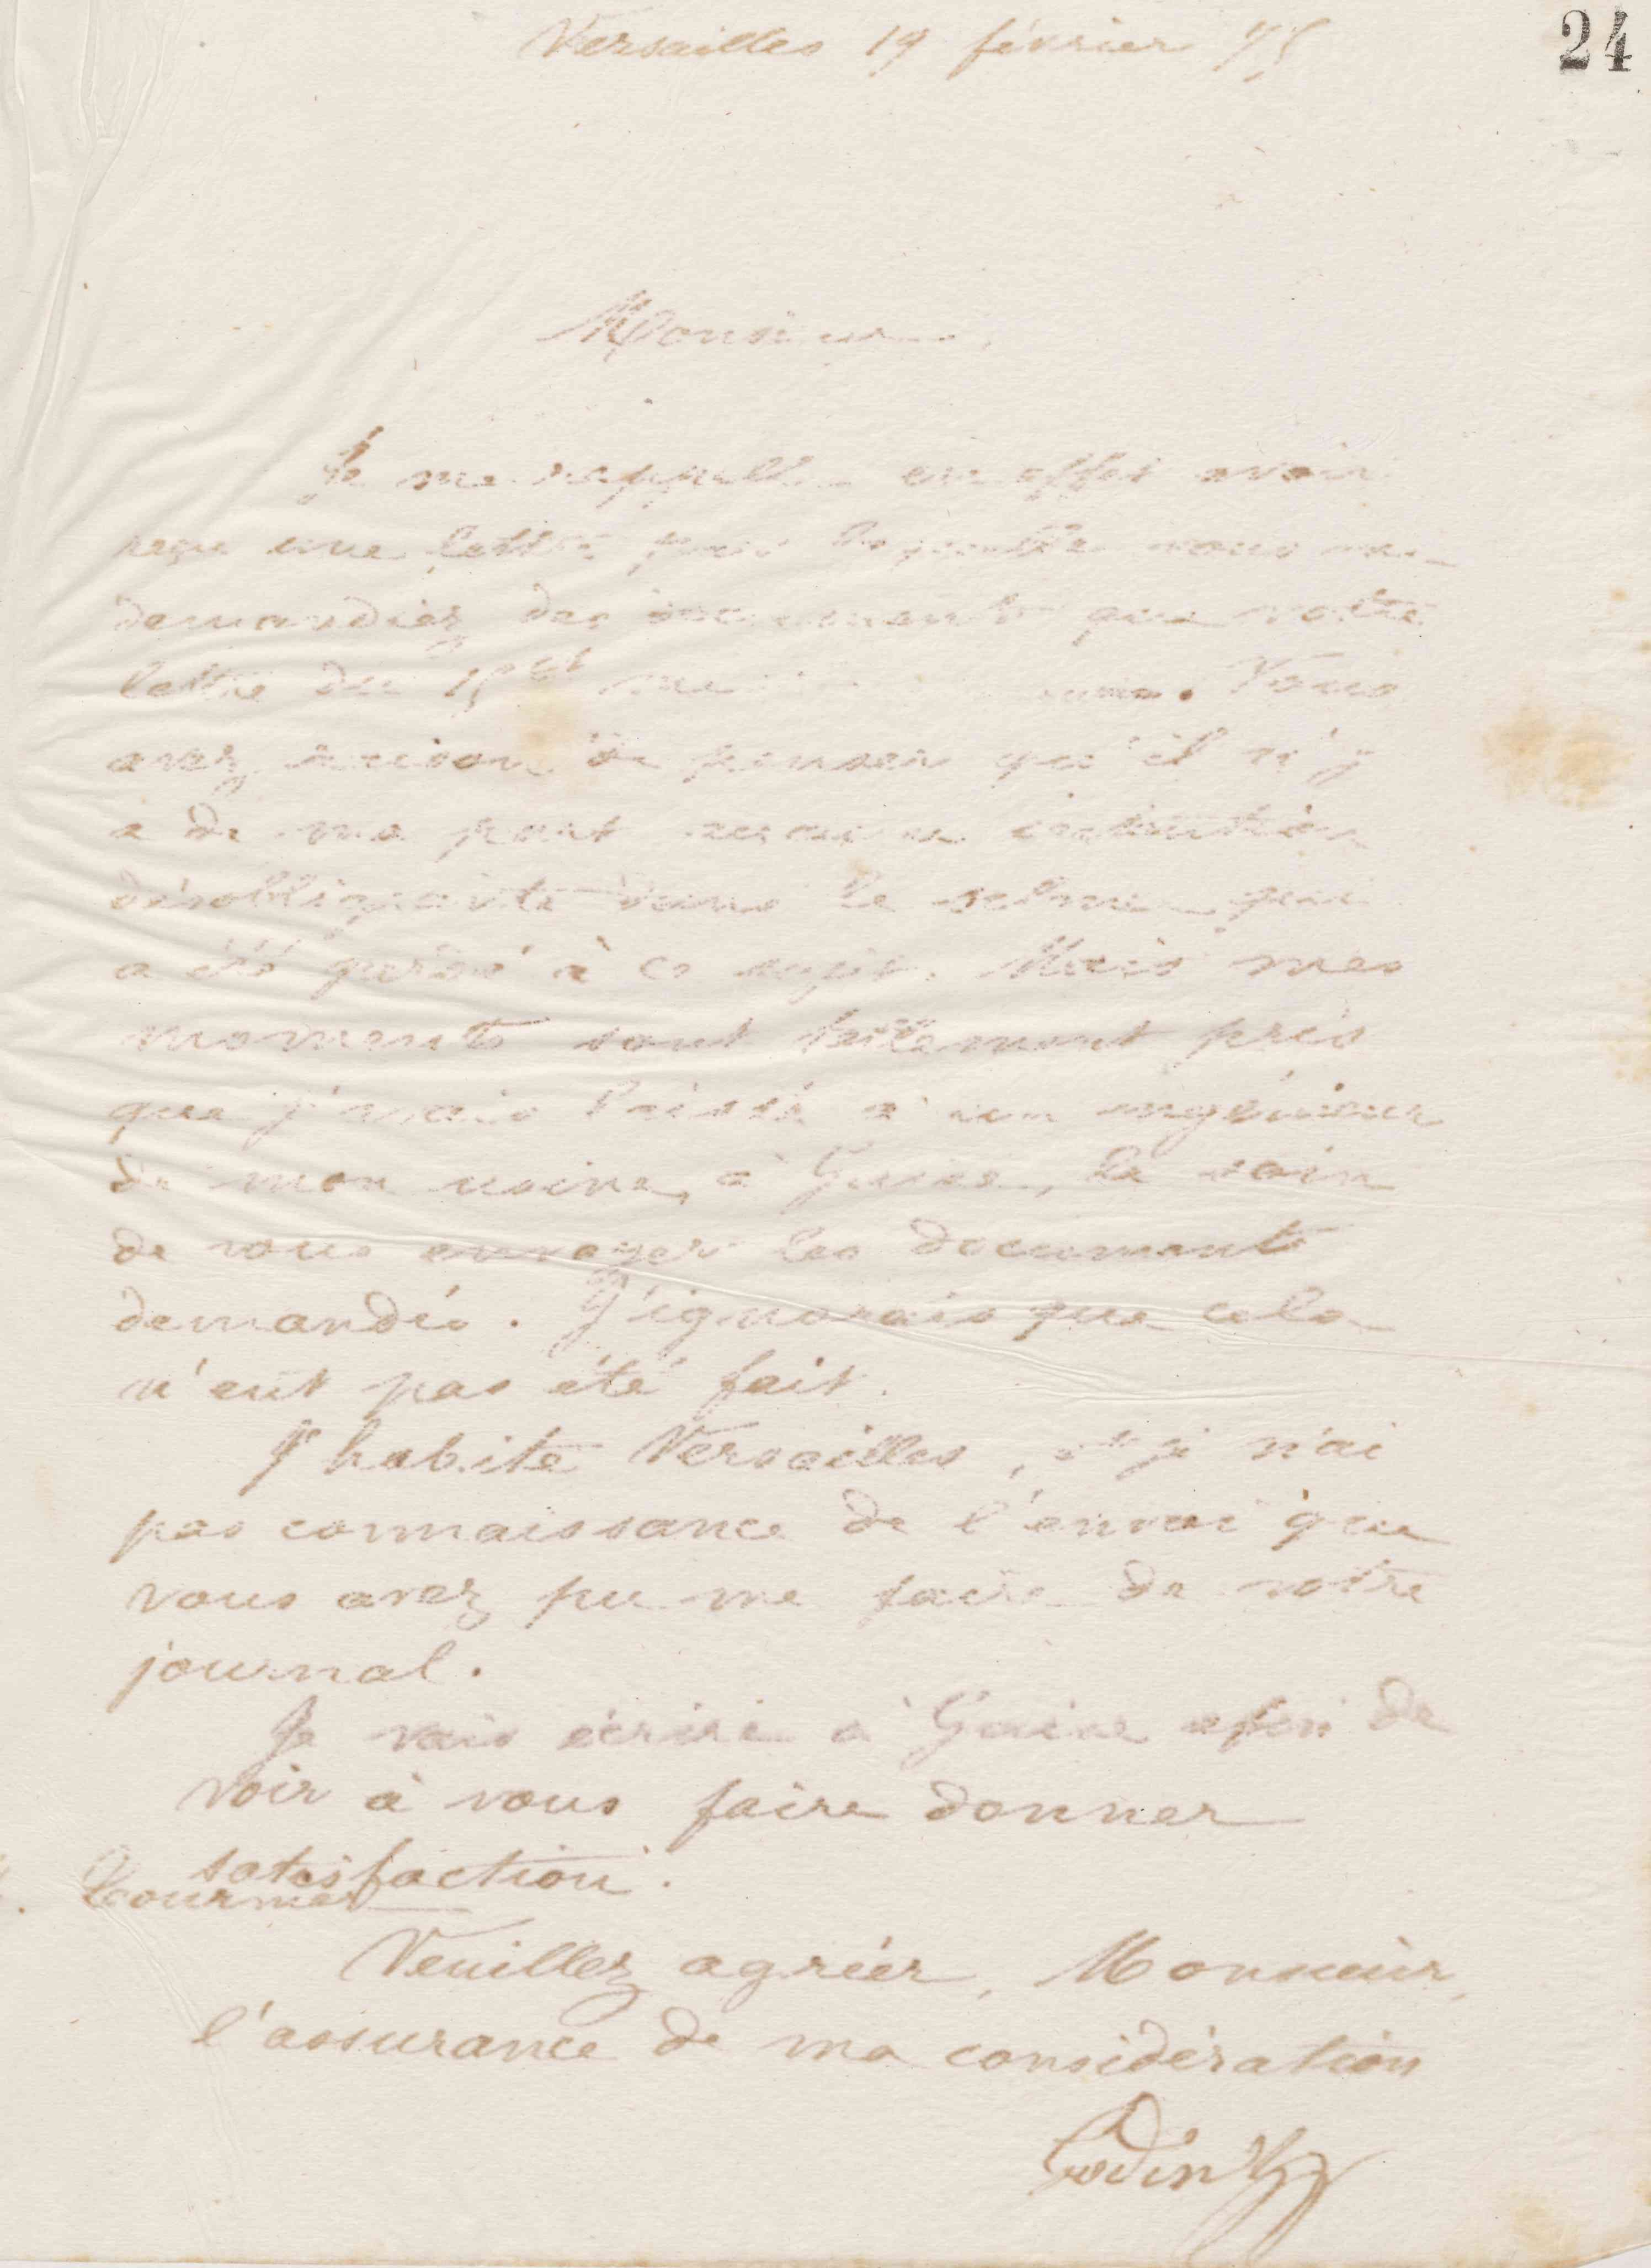 24
Versailles 19 février 75
Monsieur,
Je me rappelle en effet avoir
reçu une lettre par laquelle vous me
demandiez des documents que votre
lettre du 15 Ct me Vous
avez raison de penser qu'il n'y
a de ma part aucune intention
désobligeante dans le silence qui
a été gardé à ce sujet. Mais mes
moments sont tellement pris
que j'avais laissé à un ingénieur
de mon usine, à Guise, le soin
de vous envoyer les documents
demandés. J'ignorais que cela
n'eut pas été fait.
J'habite Versailles, et je n'ai
pas connaissance de l'envoi que
vous avez pu me faire de votre
journal.
Je vais écrire à Guise afin de
voir à vous faire donner
satisfaction.
Veuillez agréer, Monsieur,
l'assurance de ma considération
Godin